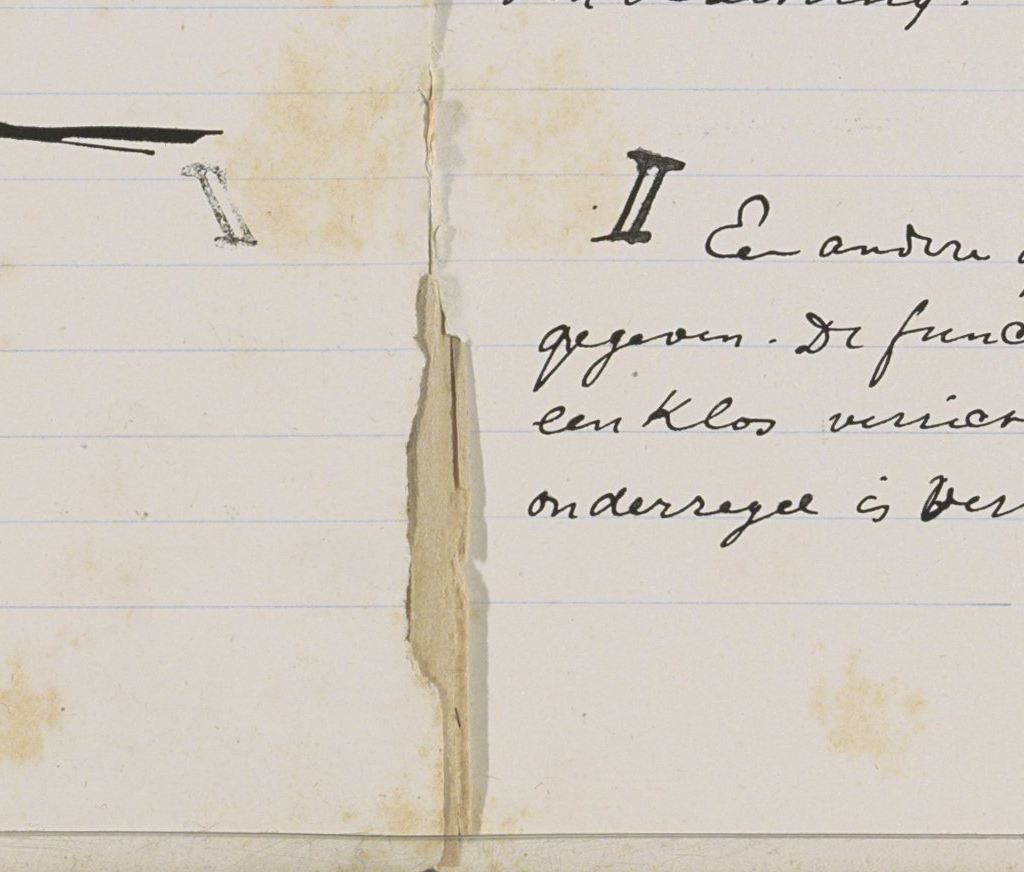 II Een andere
gegeven. De func
een Klos verrich
onderregel is ver